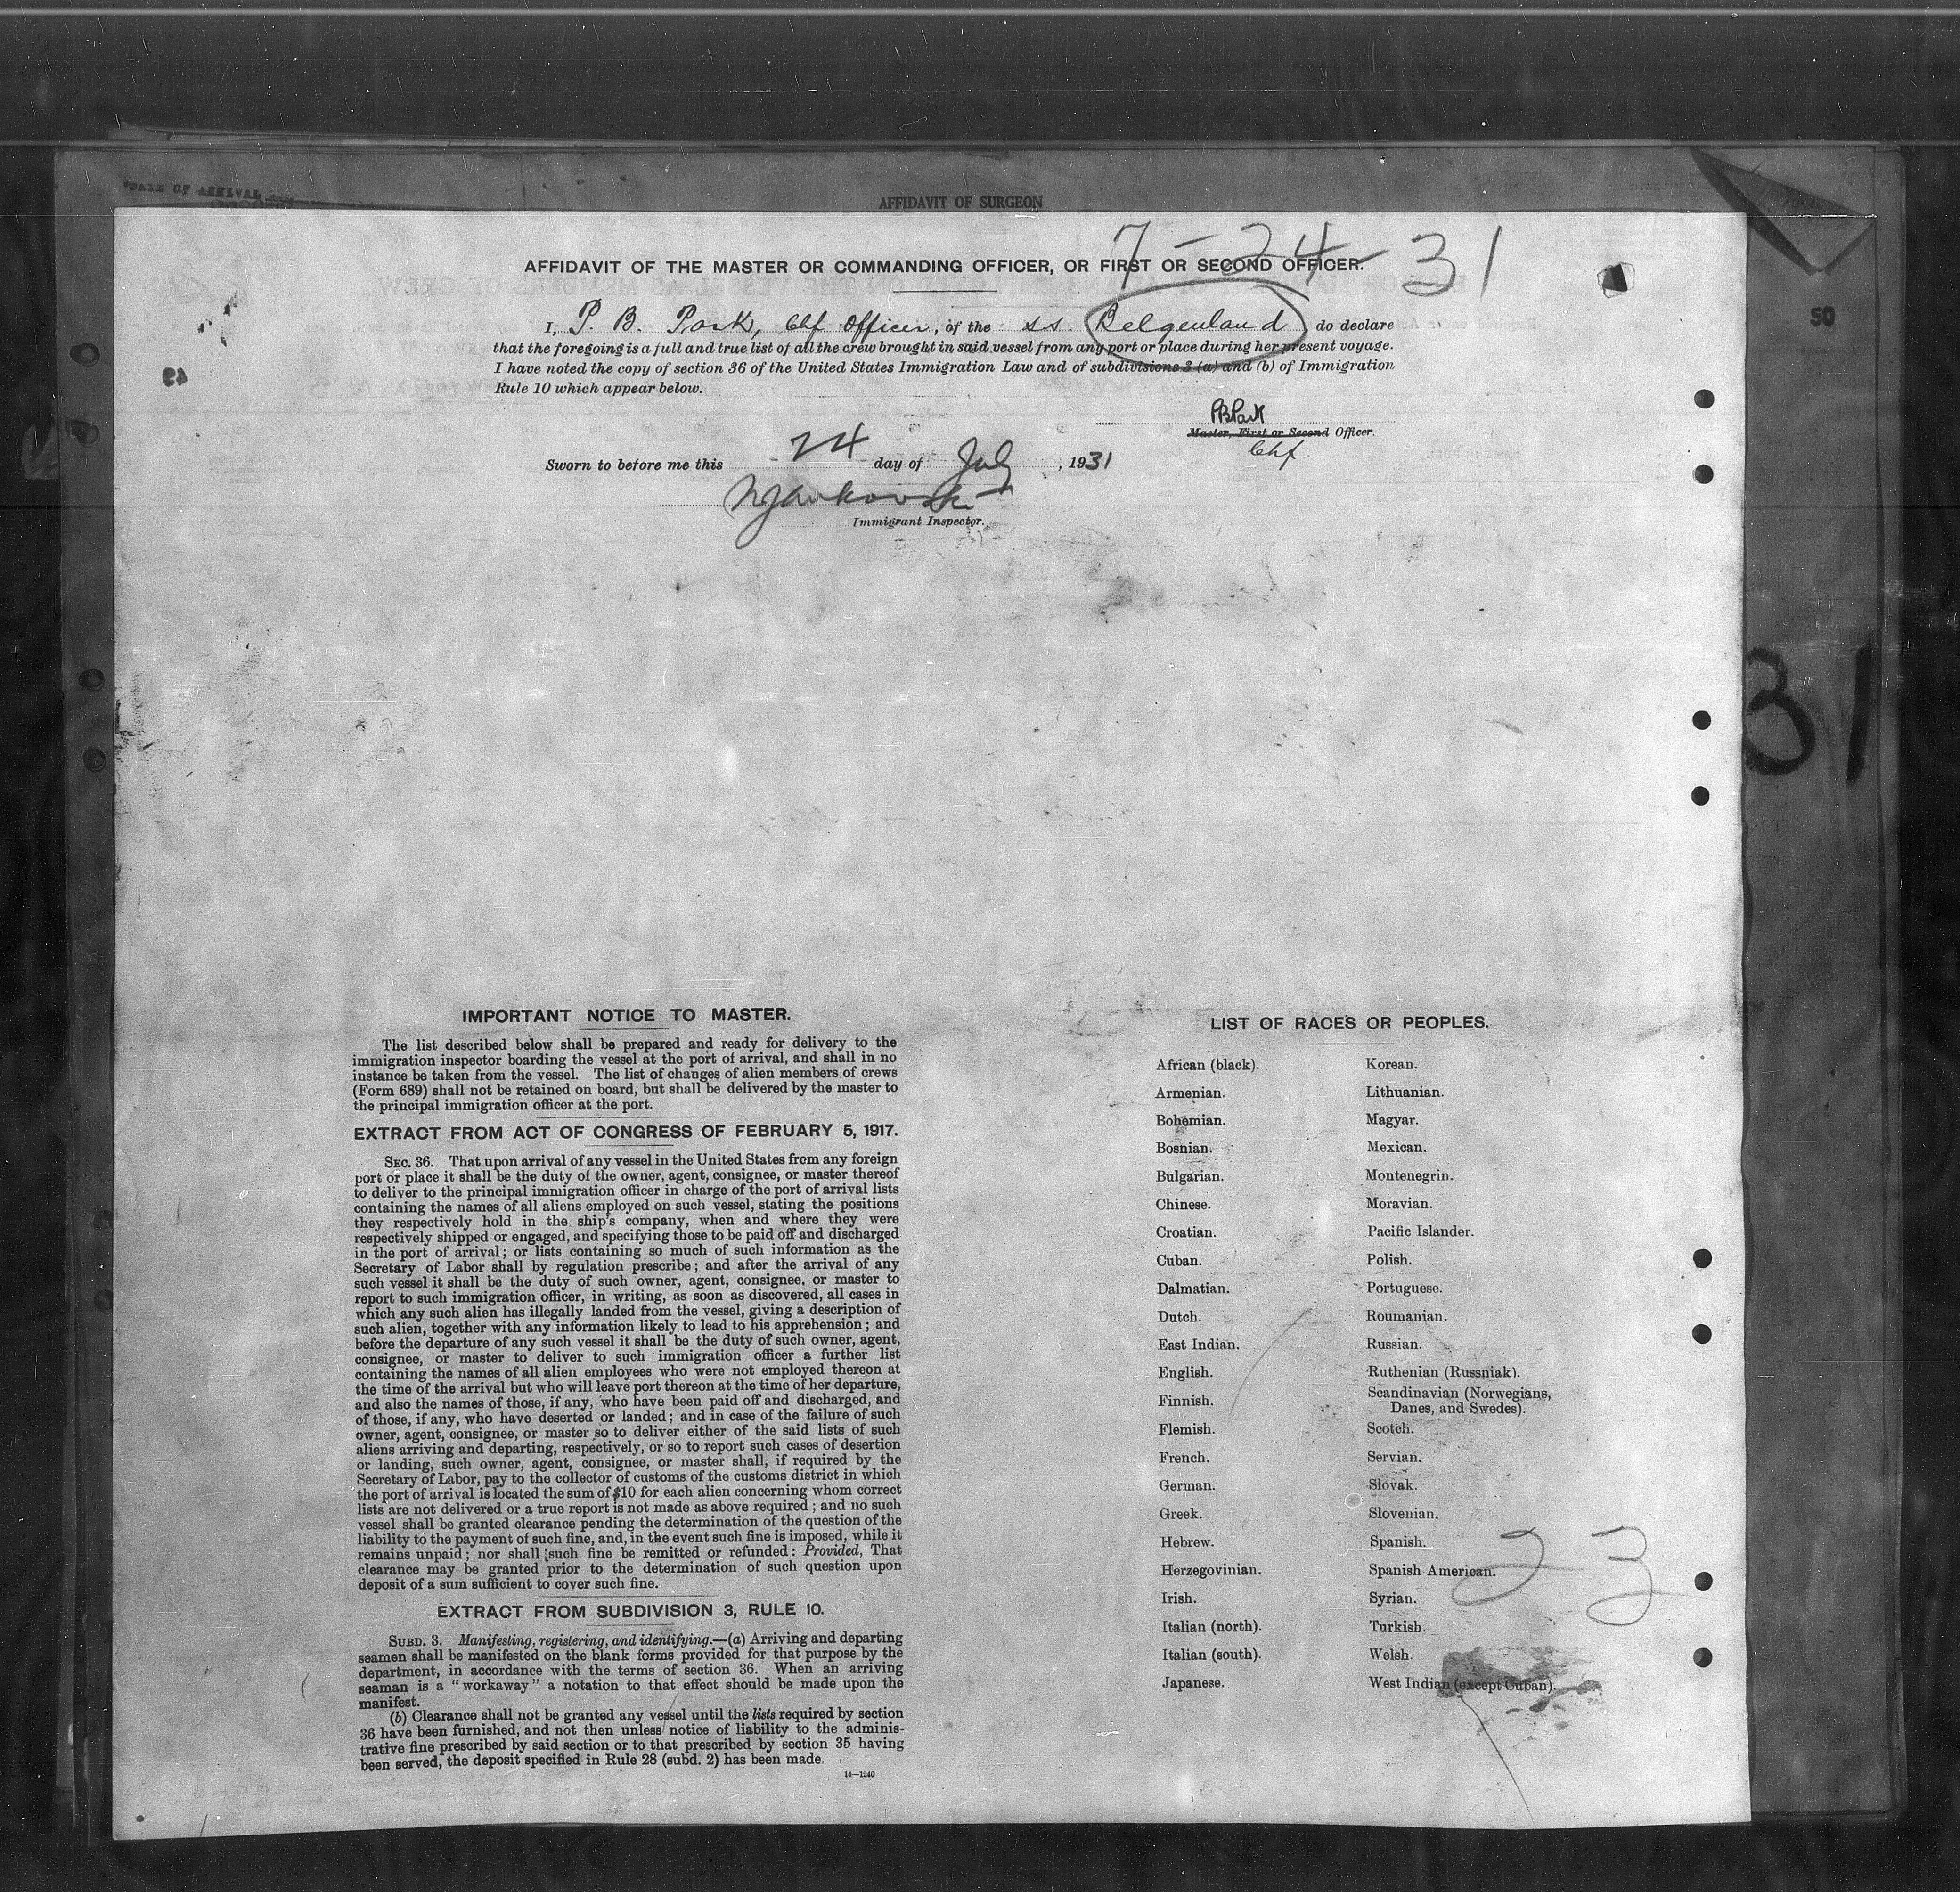 DATE OF ARRIVAL
AFFIDAVIT OF SURGEON
7-24-31
AFFIDAVIT OF THE MASTER OR COMMANDING OFFICER, OR FIRST OR SECOND OFFICER.
I, P. B. Park, Chf Officer, of the s.s. Belgenland do declare
that the foregoing is a full and true list of all the crew brought in said vessel from any port or place during her present voyage.
I have noted the copy of section 36 of the United States Immigration Law and of subdivisions 3 (a) and (b) of Immigration
Rule 10 which appear below.
PBPark
Master, First or Second Officer.
Chf
Sworn to before me this 24 day of July, 1931
Immigrant Inspector.
50
31
IMPORTANT NOTICE TO MASTER.
The list described below shall be prepared and ready for delivery to the
immigration inspector boarding the vessel at the port of arrival, and shall in no
instance be taken from the vessel. The list of changes of alien members of crews
(Form 689) shall not be retained on board, but shall be delivered by the master to
the principal immigration officer at the port.
EXTRACT FROM ACT OF CONGRESS OF FEBRUARY 5, 1917.
SEC. 36. That upon arrival of any vessel in the United States from any foreign
port or place it shall be the duty of the owner, agent, consignee, or master thereof
to deliver to the principal immigration officer in charge of the port of arrival lists
containing the names of all aliens employed on such vessel, stating the positions
they respectively hold in the ship's company, when and where they were
respectively shipped or engaged, and specifying those to be paid off and discharged
in the port of arrival; or lists containing so much of such information as the
Secretary of Labor shall by regulation prescribe; and after the arrival of any
such vessel it shall be the duty of such owner, agent, consignee, or master to
report to such immigration officer, in writing, as soon as discovered, all cases in
which any such alien has illegally landed from the vessel, giving a description of
such alien, together with any information likely to lead to his apprehension; and
before the departure of any such vessel it shall be the duty of such owner, agent,
consignee, or master to deliver to such immigration officer a further list
containing the names of all alien employees who were not employed thereon at
the time of the arrival but who will leave port thereon at the time of her departure,
and also the names of those, if any, who have been paid off and discharged, and
of those, if any, who have deserted or landed; and in case of the failure of such
owner, agent, consignee, or master so to deliver either of the said lists of such
aliens arriving and departing, respectively, or so to report such cases of desertion
or landing, such owner, agent, consignee, or master shall, if required by the
Secretary of Labor, pay to the collector of customs of the customs district in which
the port of arrival is located the sum of $10 for each alien concerning whom correct
lists are not delivered or a true report is not made as above required; and no such
vessel shall be granted clearance pending the determination of the question of the
liability to the payment of such fine, and, in the event such fine is imposed, while it
remains unpaid; nor shall such fine be remitted or refunded: Provided, That
clearance may be granted prior to the determination of such question upon
deposit of a sum sufficient to cover such fine.
EXTRACT FROM SUBDIVISION 3, RULE 10.
SUBD. 3. Manifesting, registering, and identifying.—(a) Arriving and departing
seamen shall be manifested on the blank forms provided for that purpose by the
department, in accordance with the terms of section 36. When an arriving
seaman is a "workaway" a notation to that effect should be made upon the
manifest.
(b) Clearance shall not be granted any vessel until the lists required by section
36 have been furnished, and not then unless notice of liability to the adminis-
trative fine prescribed by said section or to that prescribed by section 35 having
been served, the deposit specified in Rule 28 (subd. 2) has been made.
14—1240
LIST OF RACES OR PEOPLES.
African (black).
Armenian.
Bohemian.
Bosnian.
Bulgarian.
Chinese.
Croatian.
Cuban.
Dalmatian.
Dutch.
East Indian.
English.
Finnish.
Flemish.
French.
German.
Greek.
Hebrew.
Herzegovinian.
Irish.
Italian (north).
Italian (south).
Japanese.
Korean.
Lithuanian.
Magyar.
Mexican.
Montenegrin.
Moravian.
Pacific Islander.
Polish.
Portuguese.
Roumanian.
Russian.
Ruthenian (Russniak).
Scandinavian (Norwegians,
Danes, and Swedes).
Scotch.
Servian.
Slovak.
Slovenian.
Spanish.
Spanish American.
Syrian.
Turkish.
Welsh.
West Indian (except Cuban).
23